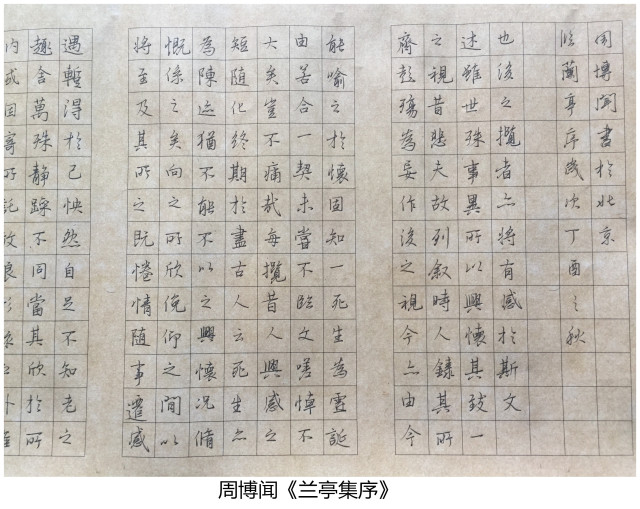 趣舍萬殊静躁不同當其欣於所
遇暫得於己怏然自足不知老之
將至及其所之既惓情随事遷感
慨係之矣向之所欣俛仰之間以
為陳迹猶不能不以之興懷况脩
短随化終期於盡古人云死生亦
大矣豈不痛哉每攬昔人興感之
由若合一契未嘗不臨文嗟悼不
能喻之於懷固知一死生為虛誕
齊彭殤為妄作後之視今亦由今
之視昔悲夫故列叙時人錄其所
述雖世殊事異所以興懷其致一
也後之攬者亦將有感於斯文
临蘭亭序歲次丁酉之秋
周博聞書於北京
周博闻《兰亭集序》